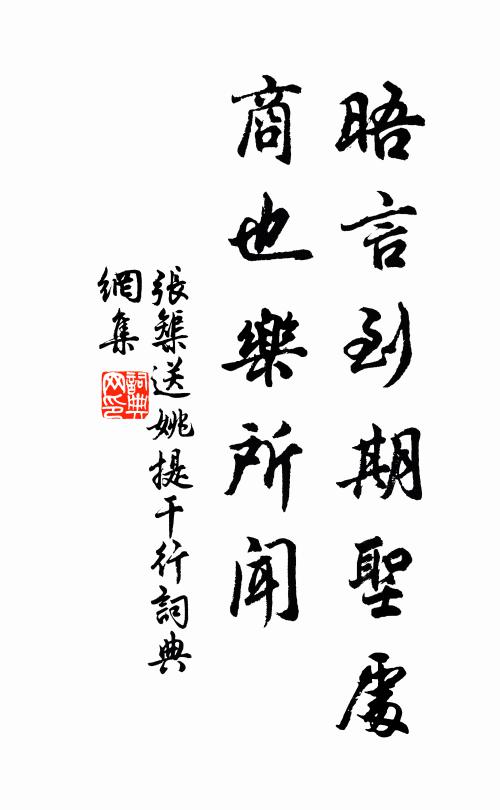 晤言到期聖處
商也樂所聞
張榘送姚提干行詞典
網集
詞典
网印